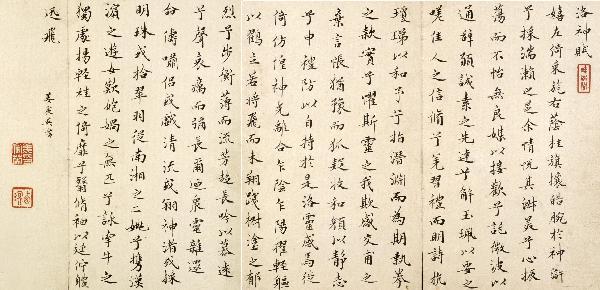 洛神賦
嬉左倚采旄右蔭桂旗攘皓腕於神滸
兮採湍瀨之玄芝余情悅其淑美兮心振
蕩而不怡無良媒以接歡兮託微波以
通辭願誠素之先達兮解玉珮以要之
嗟佳人之信脩兮羌習禮而明詩抗
瓊珶以和予兮指潛淵而為期執拳
之款實兮懼斯靈之我欺感交甫之
棄言悵猶豫而狐疑收和顏以靜志
兮申禮防以自持於是洛靈感焉徙
倚仿偟神光離合乍陰乍陽擢輕軀
以鶴立若將飛而未翔踐椒塗之郁
烈兮步蘅薄而流芳超長吟以慕遠
兮聲哀厲而彌長爾乃衆靈雜遝
命儔嘯侶或戲清流或翔神渚或採
明珠或拾翠羽從南湘之二妃兮攜漢
濱之遊女歎匏媧之無匹兮詠牽牛之
獨處揚輕袿之倚靡兮翳脩袖以延佇體
迅飛